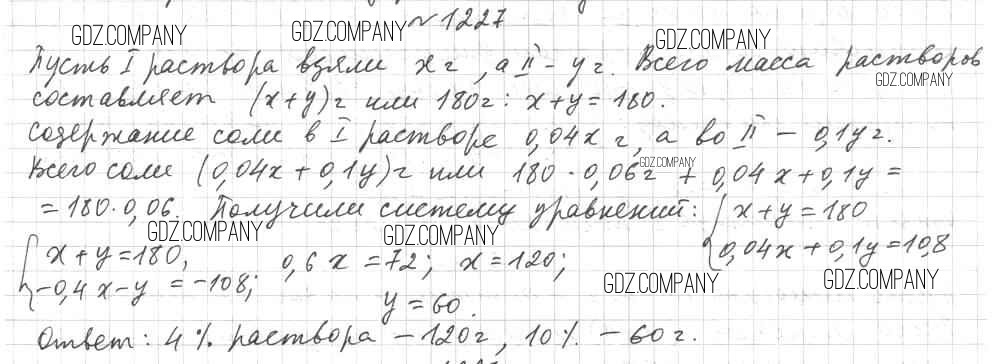 № 1227
GDZ.COMPANY GDZ.COMPANY GDZ.COMPANY
Пусть I раствора взяли x г, а II - y г. Всего масса растворов
GDZ.COMPANY
составляет (x+y) г или 180 г: x+y = 180.
Содержание соли в I растворе 0,04x г, а во II - 0,1y г.
GDZ.COMPANY
Всего соли (0,04x + 0,1y) г или 180 · 0,06 г 0,04x + 0,1y =
= 180·0,06. Получили систему уравнений: { x+y = 180
GDZ.COMPANY GDZ.COMPANY
0,04x + 0,1y = 10,8
{ x+y = 180, 0,6x = 72; x = 120;
-0,4x - y = -108; y = 60.
GDZ.COMPANY GDZ.COMPANY
Ответ: 4% раствора - 120 г, 10% - 60 г.